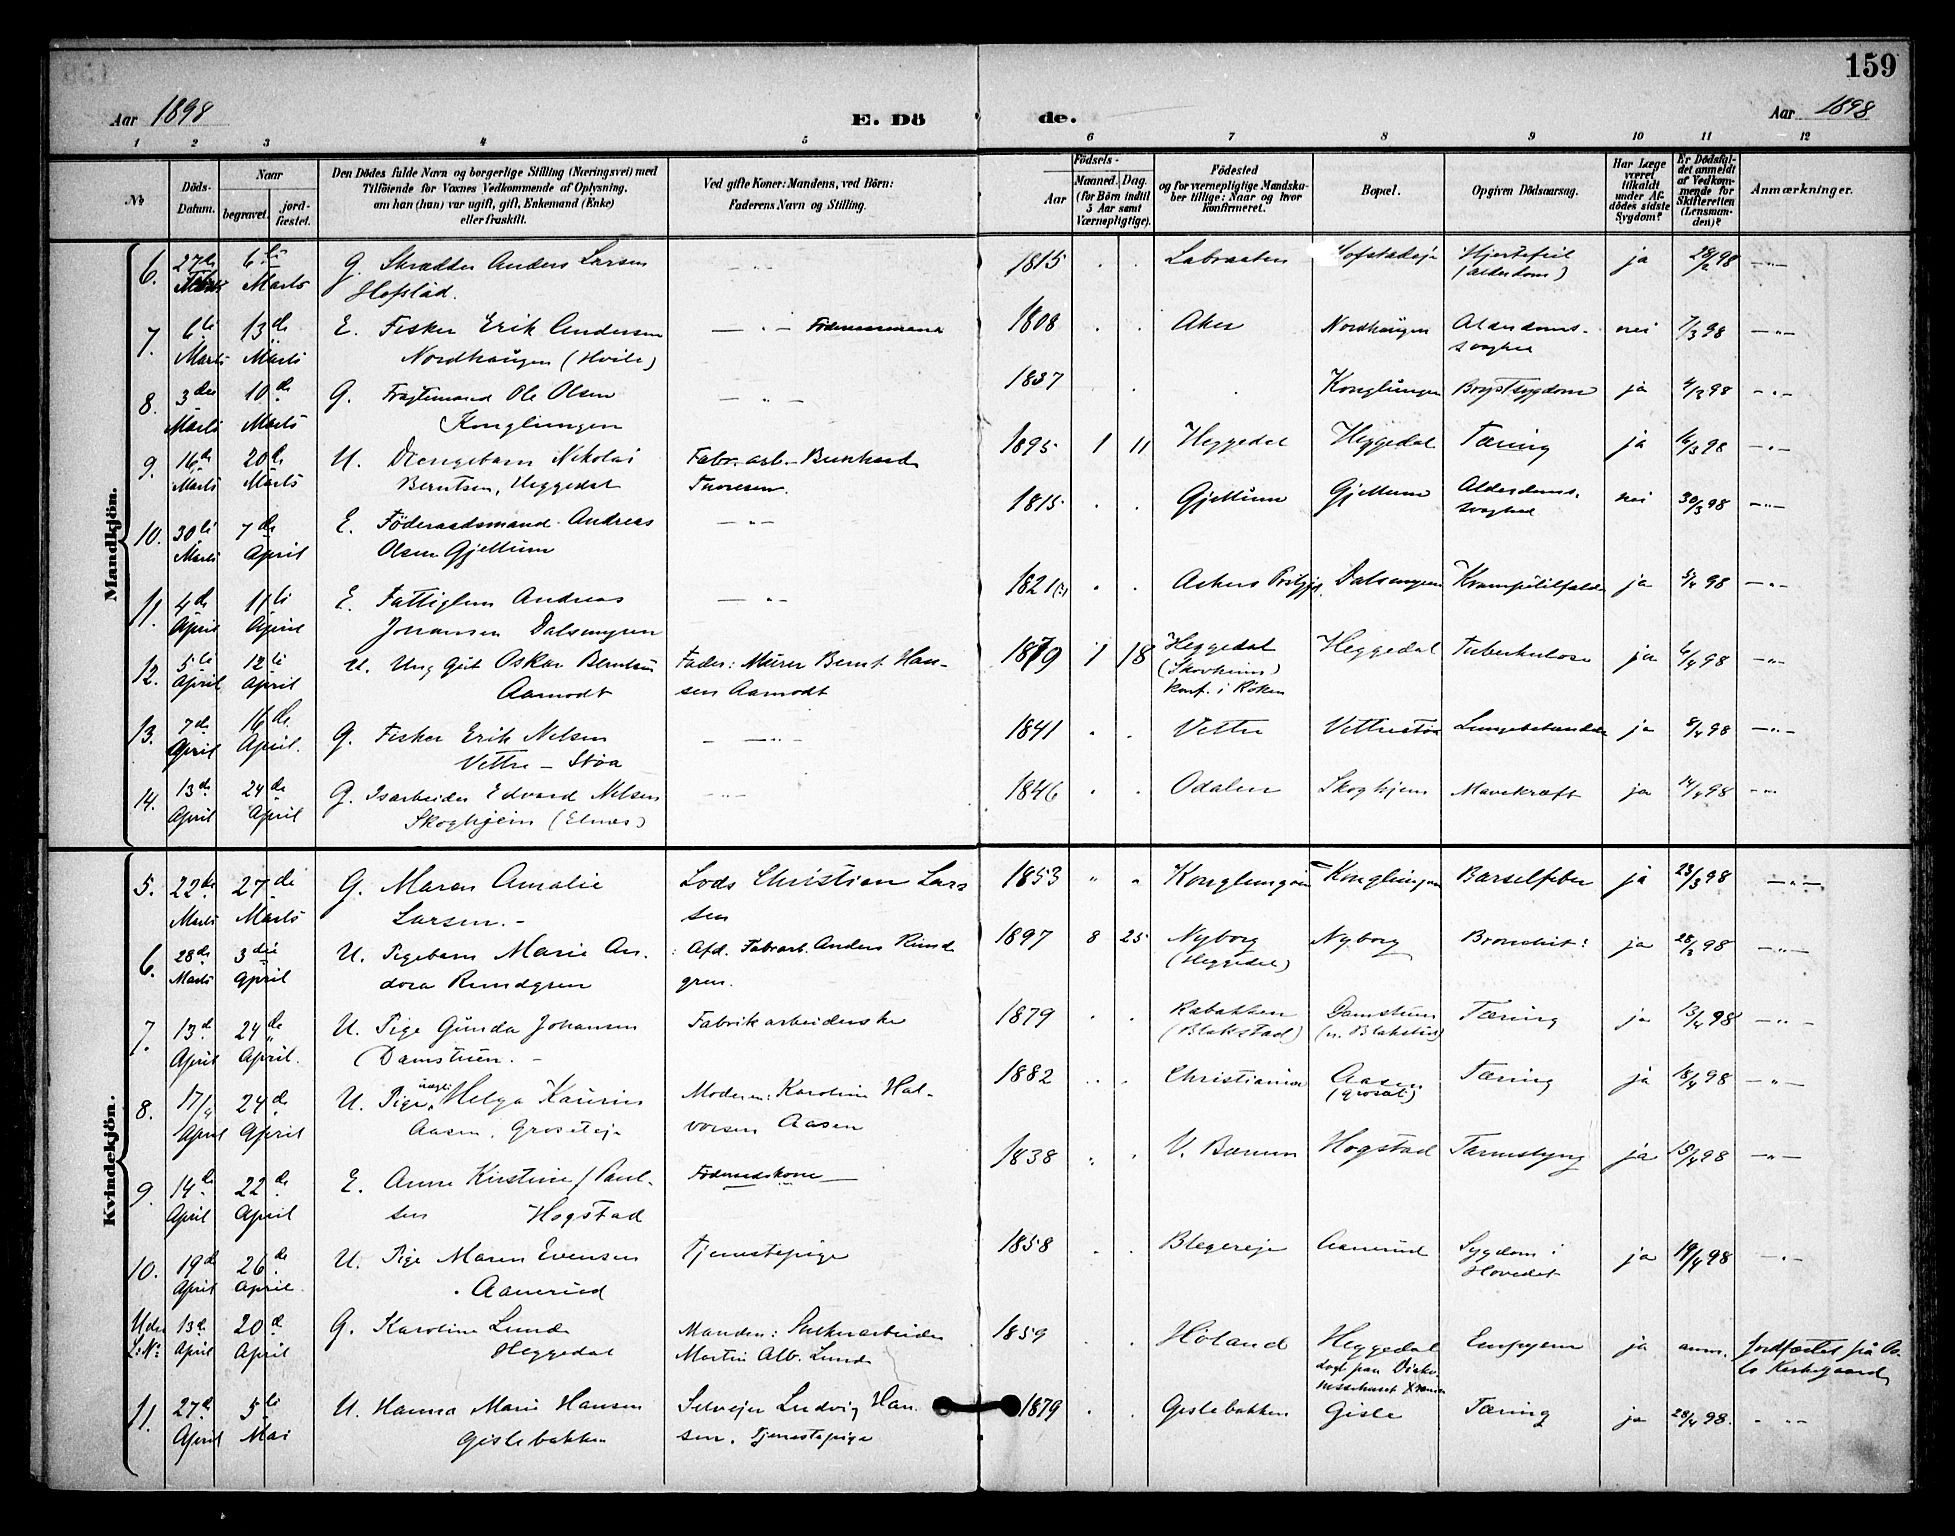 159
Aar 1898 E. Dö de. Aar 1898
1 2 3 4 5 6 7 8 9 10 11 12
No
Döds-
Datum.
Naar
begravet.
jord-
fæstet.
Den Dödes fulde Navn og borgerlige Stilling (Næringsvei) med
Tilföiende for Voxnes Vedkommende af Oplysning,
om han (hun) var ugift, gift, Enkemand (Enke)
eller fraskilt.
Ved gifte Koner: Mandens, ved Börn:
Faderens Navn og Stilling.
Födsels-
Aar
Maaned. Dag.
(for Börn indtil
5 Aar samt
Værnepligtige).
Födested
og for værnepligtige Mandska-
ber tillige: Naar og hvor
konfirmeret.
Bopæl.
Opgiven Dödsaarsag.
Har Læge
været
tilkaldt
under Af-
dödes sidste
Sygdom?
Er Dödsfal-
det anmeldt
af Vedkom-
mende for
Skifteretten
(Lensman-
den)?
Anmærkninger.
Mandkjön.
6. 27de 6te G. Skrædder Anders Larsen 1815 Labraaten Hofstadeje Hjertefeil ja 28/2 98
Marts Hofstad. (Alderdom)
7. 6te 13de E. Fisker Erik Andersen 1808 Aker Nordhaugen Alderdoms- nei 7/3 98
Marts Marts Nordhaugen (Hvile) svaghed
8. 3die 10de G. Fragtemand Ole Olsen 1837 Konglungen Brystsygdom ja 4/3 98
Marts Marts Konglungen
9. 16de 20de U. Drengebarn Nikolai Fabr. arb. Bernhard 1895 1 11 Heggedal Heggedal Tæring ja 16/3 98
Marts Marts Berntsen, Heggedal Thoresen.
10. 30te 7de E. Föderaadsmand Andreas 1815 Gjellum Gjellum Alderdoms. nei 30/3 98
Marts April Olsen Gjellum svaghed
11. 4de 11te E. Fattiglem Andreas 1821 Askers Dalsengen Krampetilfælde ja 5/4 98
April April Johansen Dalsengen
12. 5te 12te U. Ung gut Oskar Berntsen Fader: Murer Bernt Han- 1879 1 18 Heggedal Heggedal Tuberkulose ja 6/4 98
April April Aamodt sen Aamodt (Skovheim)
konf. i Röken
13. 7de 16de G. Fisker Erik Nilsen 1841 Vettre Vettrestöa ja 8/4 98
April April. Vettre - Stöa
14. 13de 24de G. Isarbeider Edvard Nilsen 1846 Odalen Skoghjem Mavekræft ja 14/4 98
April April Skoghjem (Elnes)
Kvindekjön.
5. 22de 27de G. Maren Amalie Lods Christian Lar- 1853 Konglungen Konglungen Barselfeber ja 23/3 98
Marts Marts Larsen. sen
6. 28de 3die U. Pigebarn Marie An- Afd. Fabrarb. Anders Rund- 1897 8 25 Nyborg Nyborg Bronchit: ja 28/3 98
Marts April dora Rundgren gren. (Heggedal)
7. 13de 24de U. Pige Gunda Johansen Fabrikarbeiderske 1879 Rabakken Damstuen Tæring ja 15/4 98
April April. (Damstuen. (Blakstad) (n. Blakstad)
8. 17/4 24de U. Pige, uægte Helga Kaurin Moderen: Karoline Hal- 1882 Christiania Aasen Tæring ja 18/4 98
April April Aasen, Groseteje vorsen Aasen (Groset)
9. 14de 22de E. Anne Kirstine Paul- Föderaadskone 1838 V. Bærum Hogstad Tarmslyng ja 15/4 98
April April sen Hogstad
10. 19de 26de U. Pige Maren Evensen Tjenestepige 1858 Blegereje Aanerud Sygdom i ja 19/4 98
April April. Aanerud Hovedet
Uden 13de 20de G. Karoline Lund Manden: 1859 Höland Heggedal Empyem ja anm. Jordfæstet på Os-
L. No April April Heggedal Martin Alb. Lund död paa Diako- lo Kirkegaard
nissehuset
11. 27de 5te U. Hanna Marie Hansen Selveier Ludvig Han- 1879 Gislebakken Gisle Tæring ja 28/4 98.
April Mai Gislebakken sen. Tjenestepige